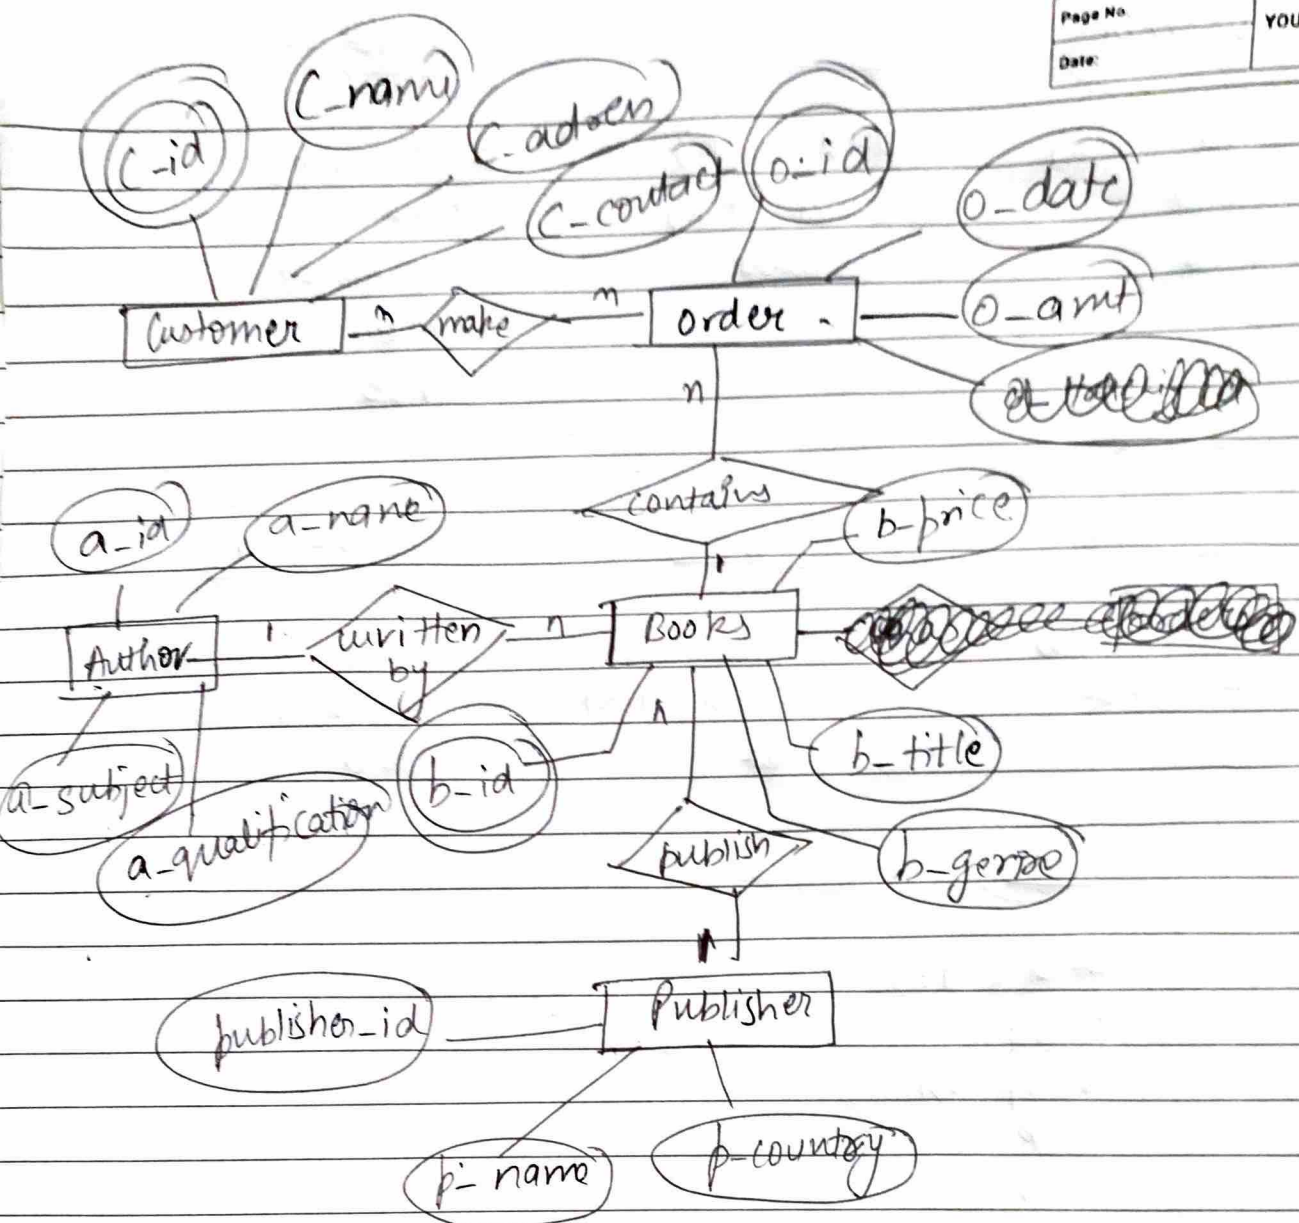 Page No.
YOU
Date:
C_name
C_id
C_contact
o_id
o_date
o_amt
Customer
n
make
n
Order
n
contains
b_price
a_id
a_name
1
Author
1
written
by
n
Books
a_subject
a_qualification
b_id
b_title
publish
b_genre
Publisher
publisher_id
p_name
p_country